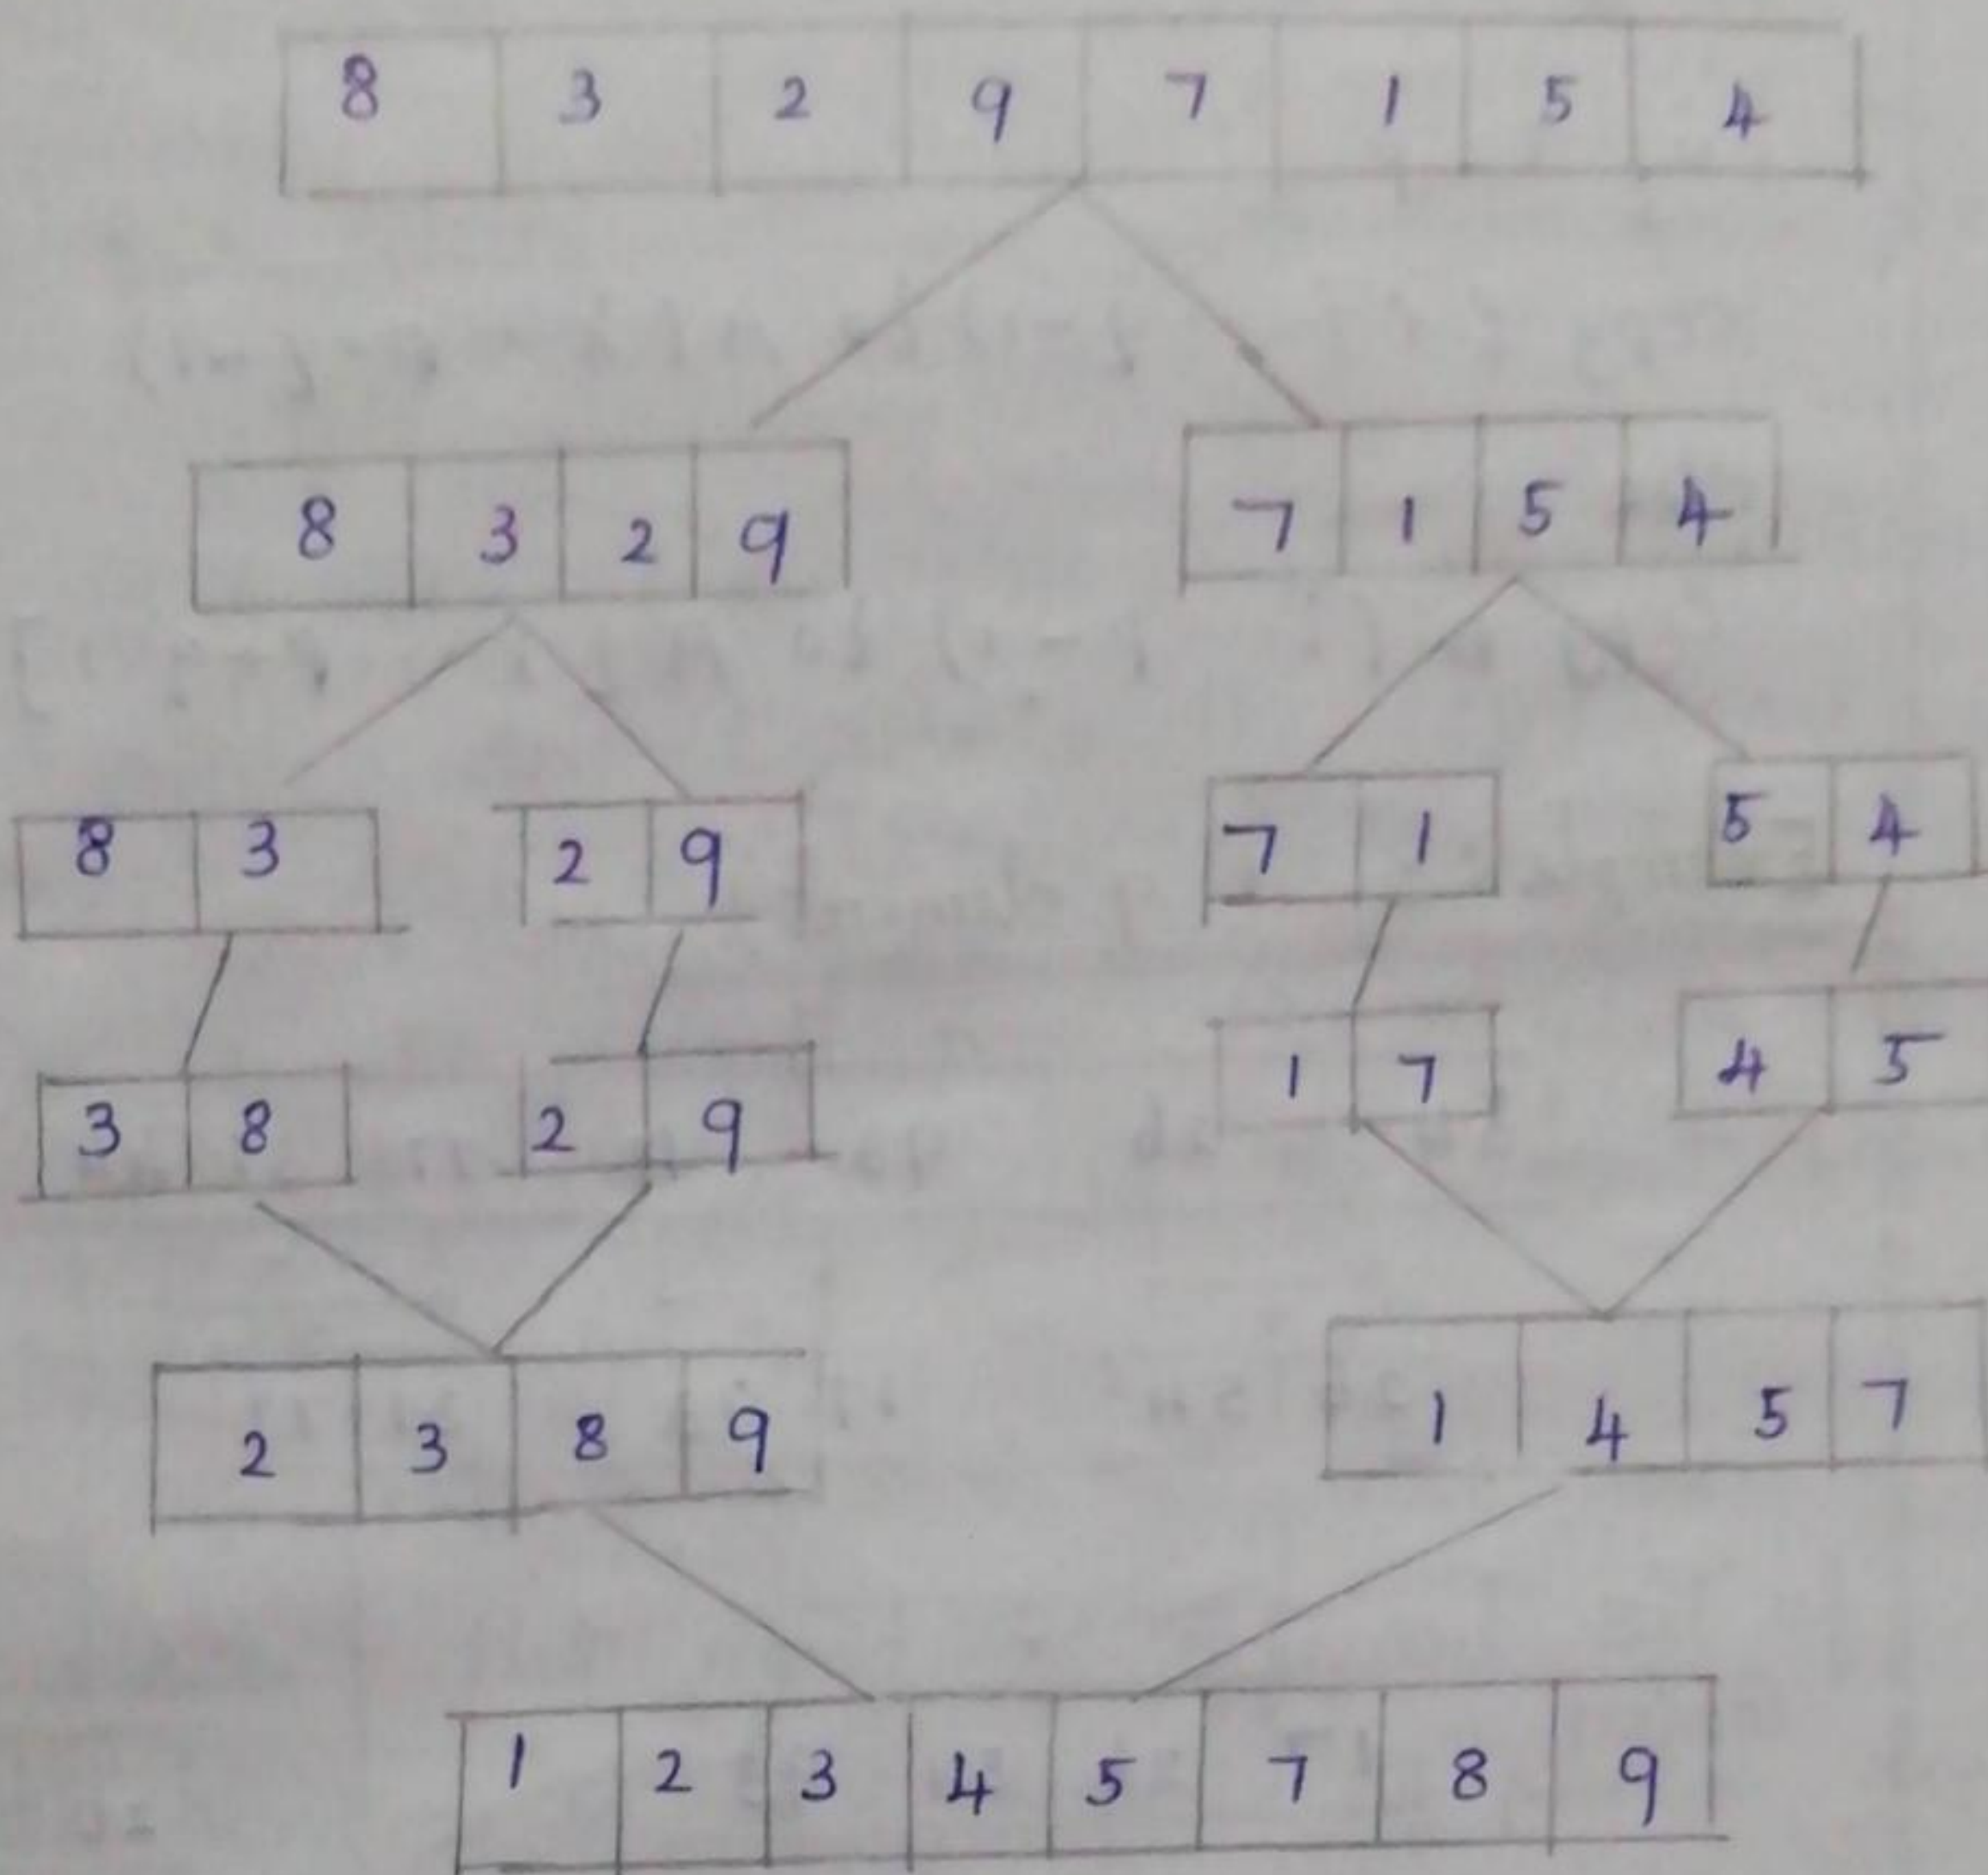 8 3 2 9 7 1 5 4
8 3 2 9
7 1 5 4
8 3
2 9
7 1
5 4
3 8
2 9
1 7
4 5
2 3 8 9
1 4 5 7
1 2 3 4 5 7 8 9